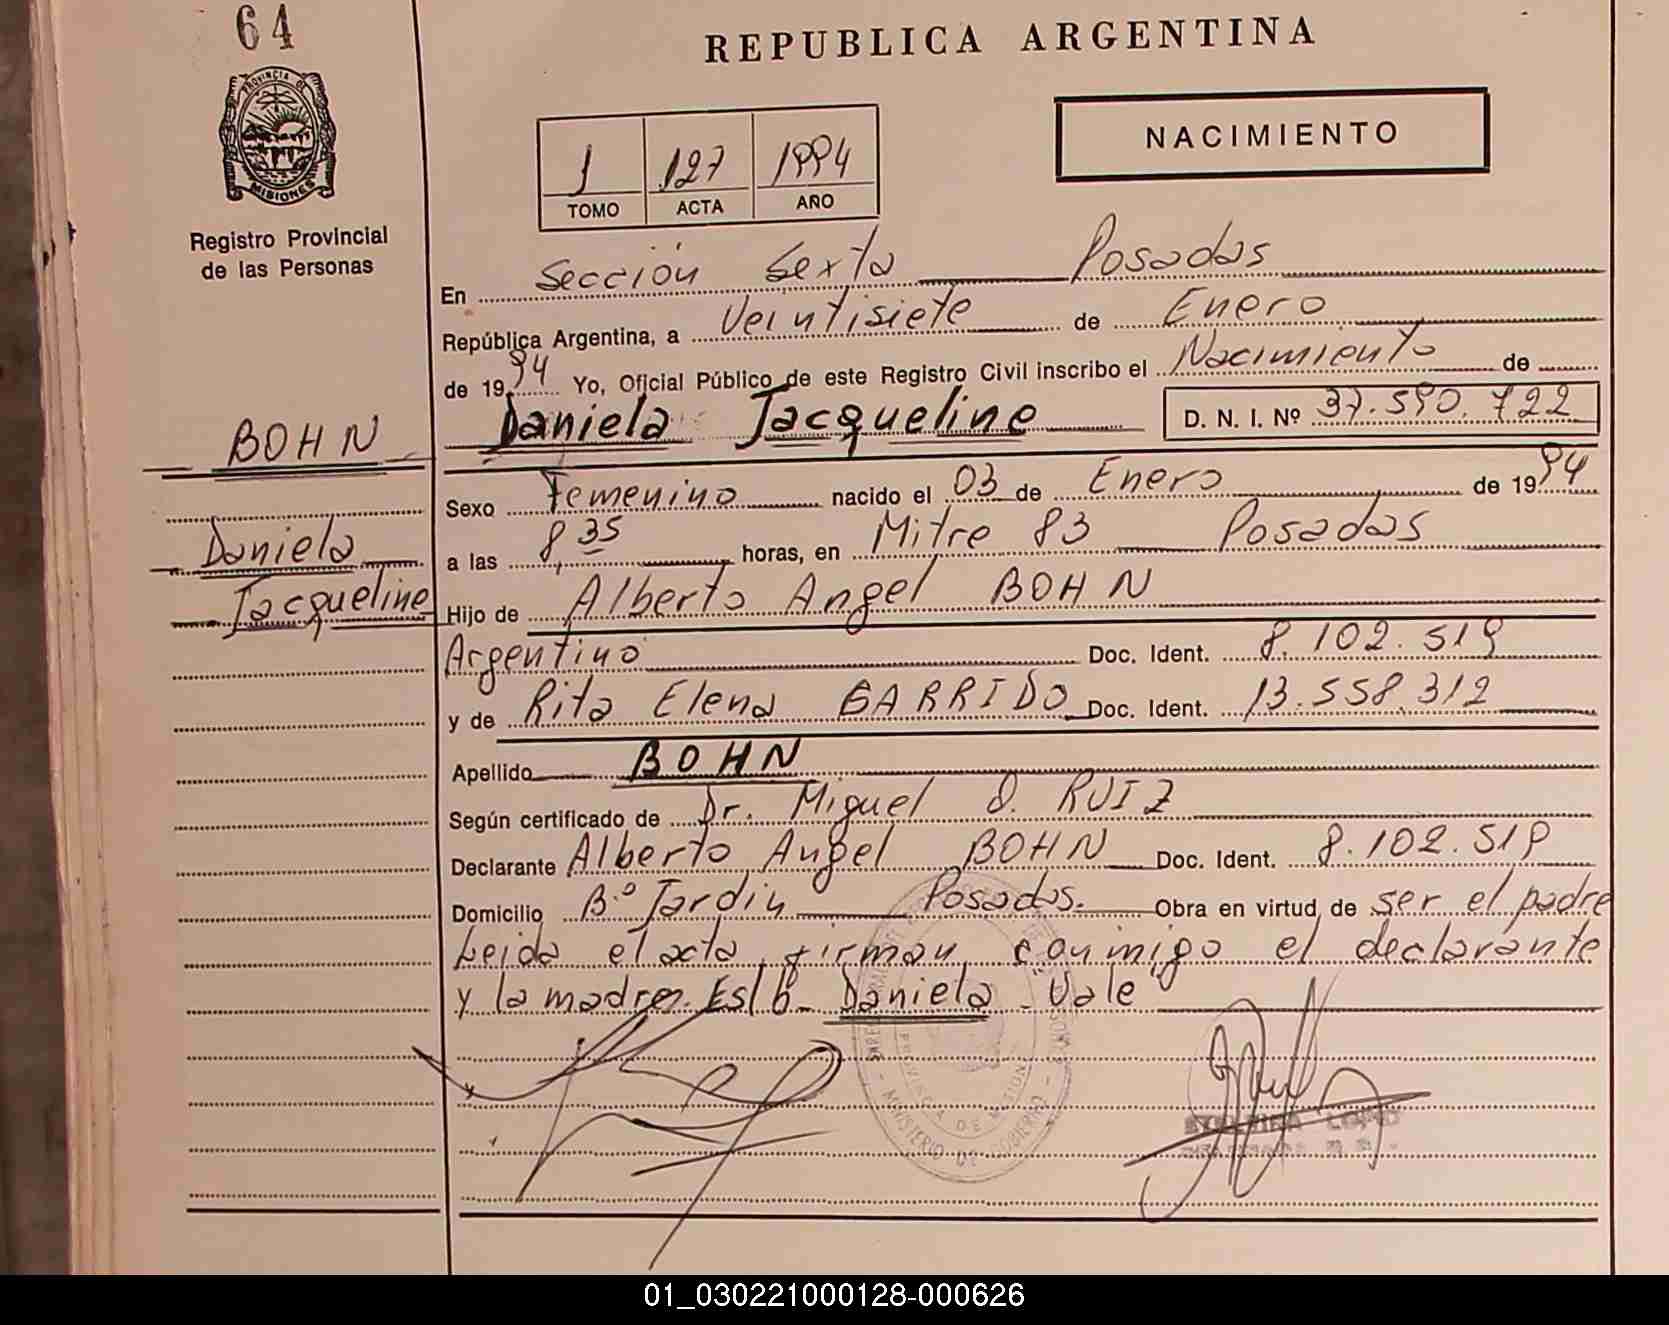 64
REPUBLICA ARGENTINA
PROVINCIA DE
MISIONES
Registro Provincial
de las Personas
1 127 1994
TOMO ACTA AÑO
NACIMIENTO
En Sección Sexta Posadas
República Argentina, a Veintisiete de Enero
de 1994 Yo, Oficial Público de este Registro Civil inscribo el Nacimiento de
Daniela Jacqueline D. N. I. Nº 37.590.722
BOHN
Daniela
Jacqueline
Sexo Femenino nacido el 03 de Enero de 1994
a las 8,35 horas, en Mitre 83 Posadas
Hijo de Alberto Angel BOHN
Argentino Doc. Ident. 8.102.519
y de Rita Elena GARRIDO Doc. Ident. 13.558.312
Apellido BOHN
Según certificado de Dr. Miguel O. RUIZ
Declarante Alberto Angel BOHN Doc. Ident. 8.102.519
Domicilio Bº Jardin Posadas. Obra en virtud de ser el padre
Leida el acta, firman conmigo el declarante
y la madre. Es/b- Daniela - Vale
PROVINCIA DE MISIONES
MINISTERIO DE GOBIERNO
01_030221000128-000626